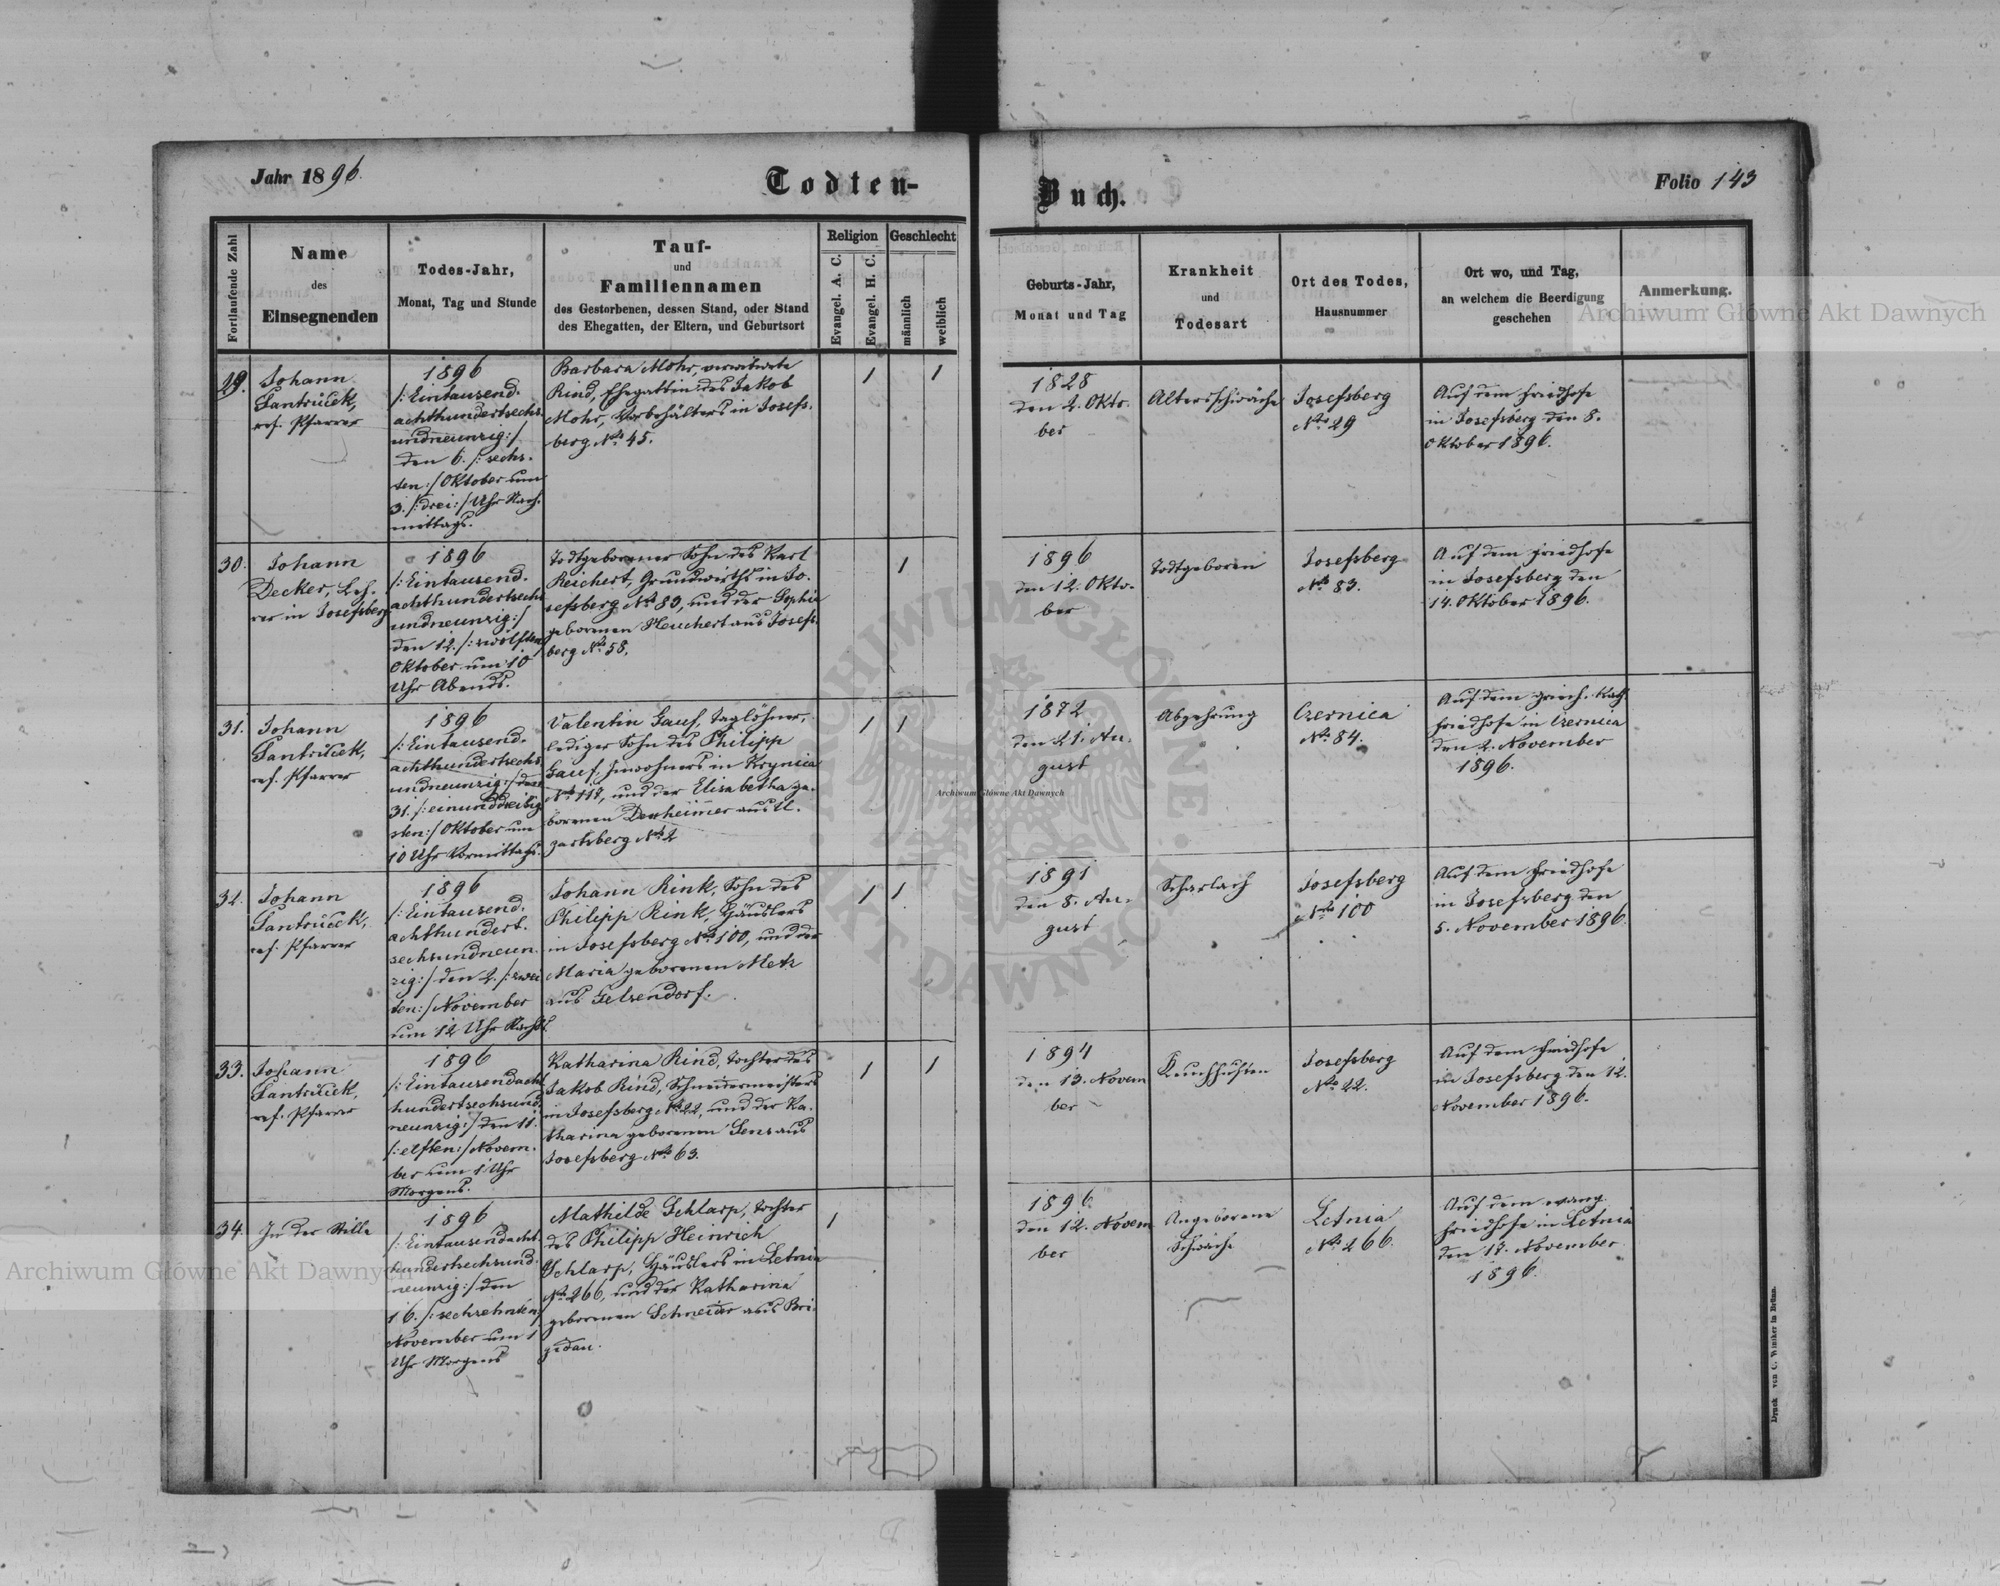 Jahr 1896.
Todten-
Buch.
Folio 143
Fortlaufende Zahl
Name
des
Einsegnenden
Todes-Jahr,
Monat, Tag und Stunde
Tauf-
und
Familiennamen
des Gestorbenen, dessen Stand, oder Stand
des Ehegatten, der Eltern, und Geburtsort
Religion
Evangel. A. C.
Evangel. H. C.
Geschlecht
männlich
weiblich
Geburts-Jahr,
Monat und Tag
Krankheit
und
Todesart
Ort des Todes,
Hausnummer
Ort wo, und Tag,
an welchem die Beerdigung
geschehen
Anmerkung.
29.
Johann
Jantrućek,
ref. Pfarrer
1896
/:Eintausend-
achthundertsechs-
undneunzig:/
den 6. /:sechs-
ten:/ Oktober um
3 /:drei:/ Uhr Nach-
mittags.
Barbara Mohr, verwitwete
Rind, Ehegattin des Jakob
Mohr, Vorbehälters in Josefs-
berg No 45.
1
1
1828
den 2. Okto-
ber
Altersschwäche
Josefsberg
No 29
Auf dem Friedhofe
in Josefsberg den 8.
Oktober 1896.
30.
Johann
Decker, Leh-
rer in Josefsberg
1896
/:Eintausend-
achthundertsechs
undneunzig:/
den 12. /:zwölften
Oktober um 10
Uhr Abends.
Todtgeborener Sohn des Karl
Reichert, Grundwirths in Jo-
sefsberg No 83, und der Sophie
geborenen Heuchert aus Josefs-
berg No 58.
1
1896
den 12. Okto-
ber
Todtgeboren
Josefsberg
No 83.
Auf dem Friedhofe
in Josefsberg den
14. Oktober 1896.
31.
Johann
Jantrućek,
ref. Pfarrer
1896
/:Eintausend-
achthundertsechs
undneunzig:/ den
31. /:einunddreißig
sten:/ Oktober um
10 Uhr Vormittags.
Valentin Gauf, Taglöhner,
lediger Sohn des Philipp
Gauf, Inwohners in Krynica
No 117, und der Elisabetha ge-
borenen Denheimer aus U-
gartsberg No 2
1
1
1872
den 21. Au-
gust
Abzehrung
Czernica
No 84.
Auf dem griech. kath.
Friedhofe in Czernica
den 2. November
1896.
32.
Johann
Jantrućek,
ref. Pfarrer
1896
/:Eintausend-
achthundert-
sechsundneun-
zig:/ den 2. /:zwei
ten:/ November
um 12 Uhr Nachts.
Johann Rink, Sohn des
Philipp Rink, Häuslers
in Josefsberg No 100, und der
Maria geborenen Metz
aus Gelsendorf.
1
1
1891
den 8. Au-
gust
Scharlach
Josefsberg
No 100
Auf dem Friedhofe
in Josefsberg den
5. November 1896.
33.
Johann
Jantrućek,
ref. Pfarrer
1896
/:Eintausendacht
hundertsechsund-
neunzig:/ den 11.
/:elften:/ Novem-
ber um 1 Uhr
Morgens.
Katharina Rind, Tochter des
Jakob Rind, Schneidermeisters
in Josefsberg No 22, und der Ka-
tharina geborenen Senz aus
Josefsberg No 63.
1
1
1894
den 13. Novem
ber
Keuchhusten
Josefsberg
No 22.
Auf dem Friedhofe
in Josefsberg den 12.
November 1896.
34.
In der Stille
1896
/:Eintausendacht-
hundertsechsund-
neunzig:/ den
16. /:sechzehnten:/
November um 1
Uhr Morgens
Mathilde Schlarp, Tochter
des Philipp Heinrich
Schlarp, Häuslers in Letnia
No 266, und der Katharina
geborenen Schneider aus Bri-
gidau.
1
1896
den 12. Novem
ber
Angeborene
Schwäche
Letnia
No 266.
Auf dem evang.
Friedhofe in Letnia
den 17. November
1896.
Druck von C. Winiker in Brünn.
Archiwum Główne Akt Dawnych
Archiwum Główne Akt Dawnych
Archiwum Główne Akt Dawnych
ARCHIWUM GŁÓWNE AKT DAWNYCH